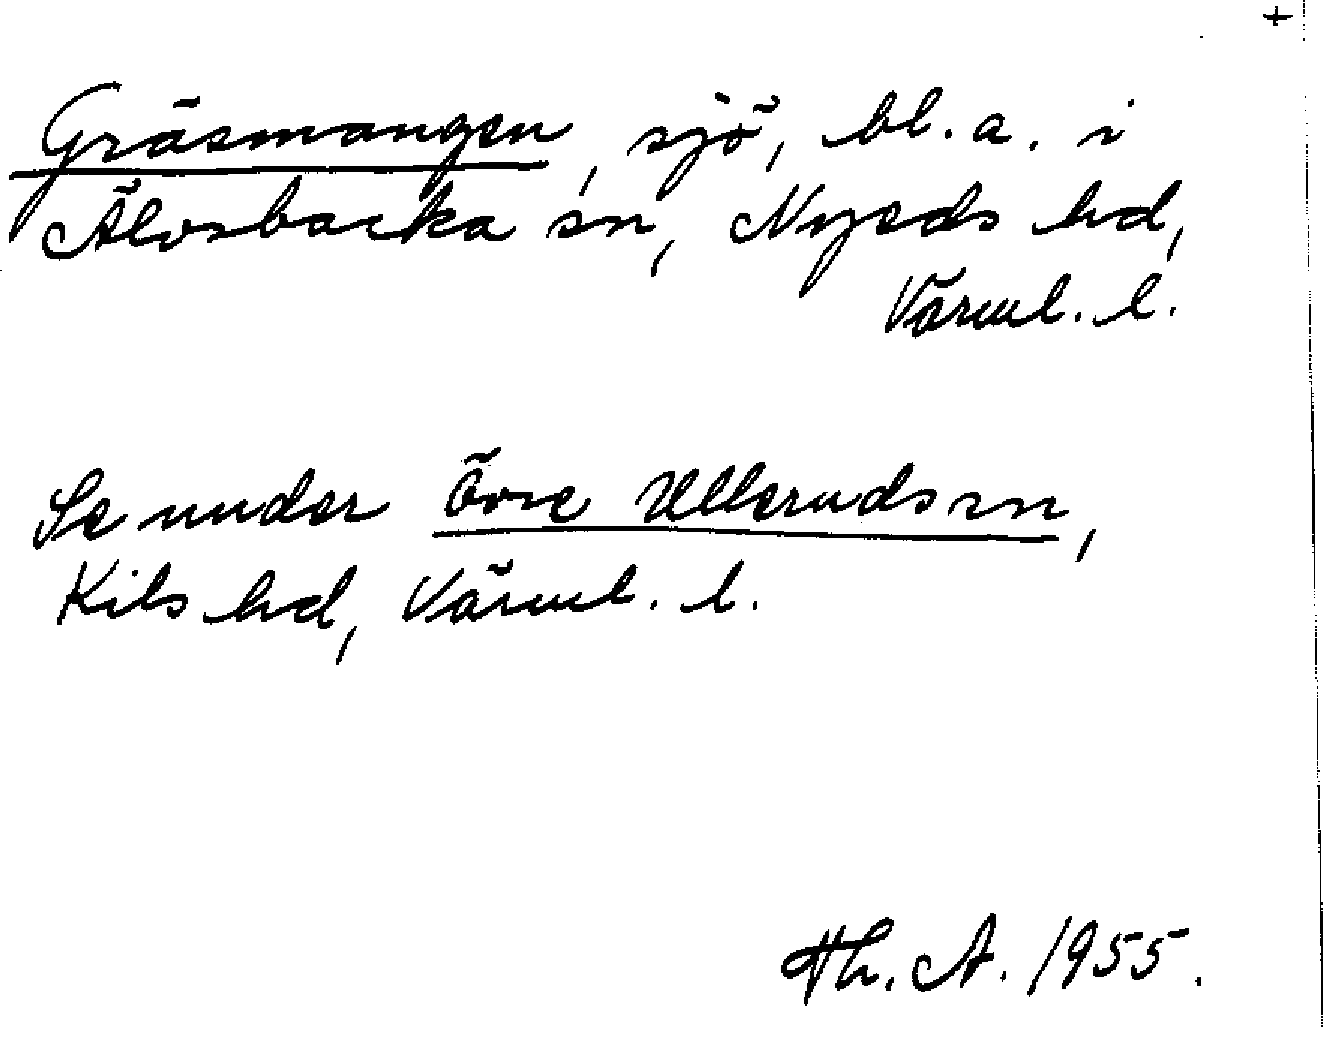 +
Gräsmangen, sjö, bl. a. i
Älvsbacka sn, Nyeds hd,
Värml. l.
Se under Övre Ulleruds sn,
Kils hd, Värml. l.
Th. A. 1955.